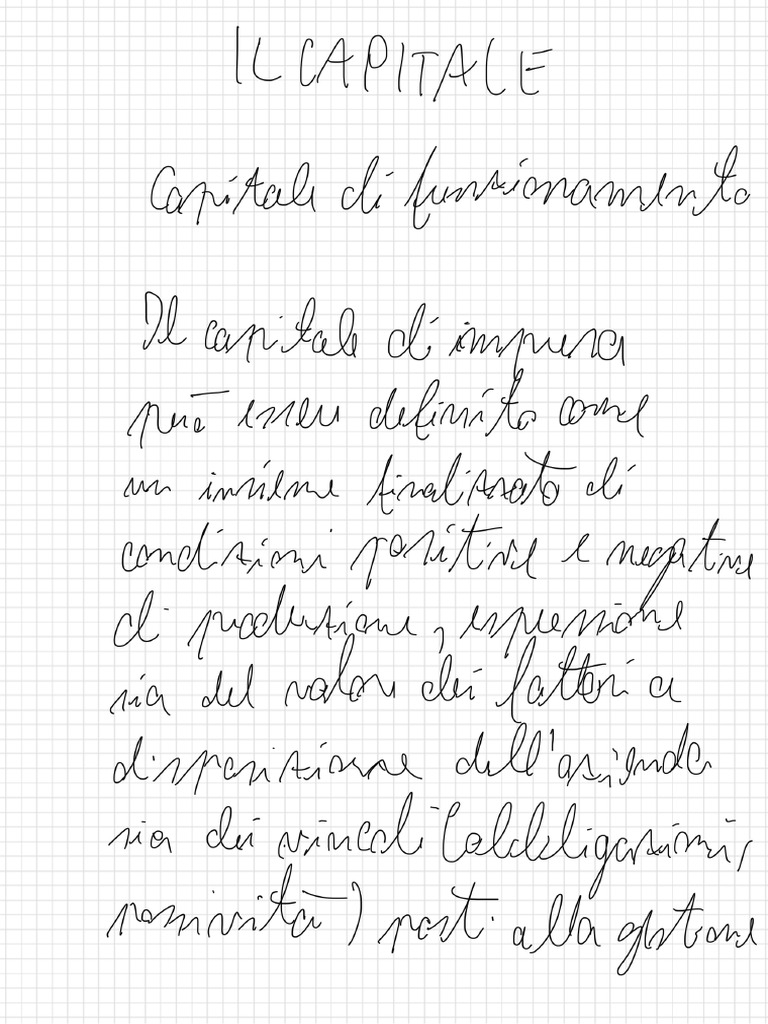 IL CAPITALE
Capitale di funzionamento
Il capitale di impresa
può essere definito come
un insieme finalizzato di
condizioni positive e negative
di produzione, espressione
sia del valore dei fattori a
disposizione dell'azienda
sia dei vincoli (obbligazioni,
passività) posti alla gestione